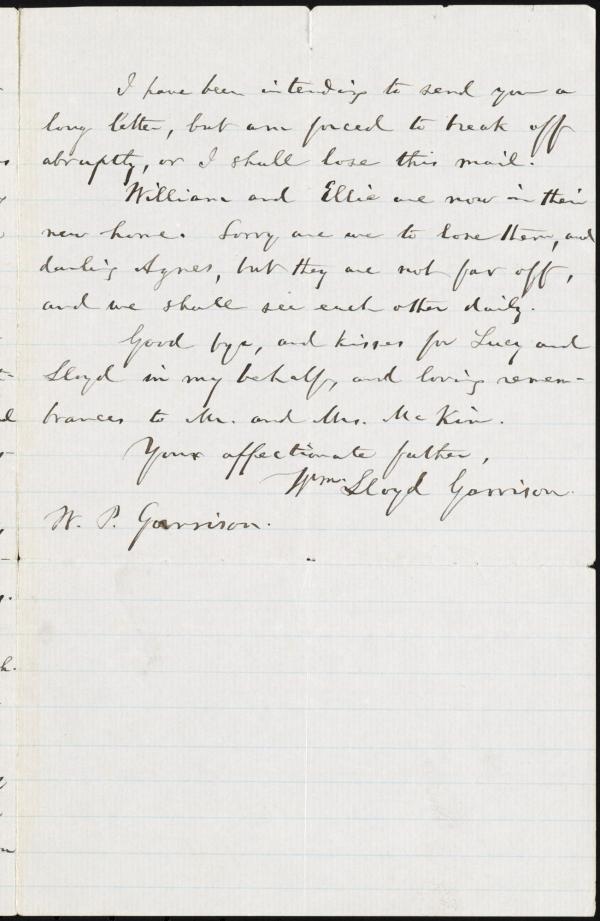 I have been intending to send you a
long letter, but am forced to break off
abruptly, or I shall lose this mail.
William and Ellie are now in their
new home. Sorry are we to lose them, and
darling Agnes, but they are not far off,
and we shall see each other daily.
Good bye, and kisses for Lucy and
Lloyd in my behalf, and loving remem-
brances to Mr. and Mrs. McKim.
Your affectionate father,
Wm. Lloyd Garrison.
W. P. Garrison.